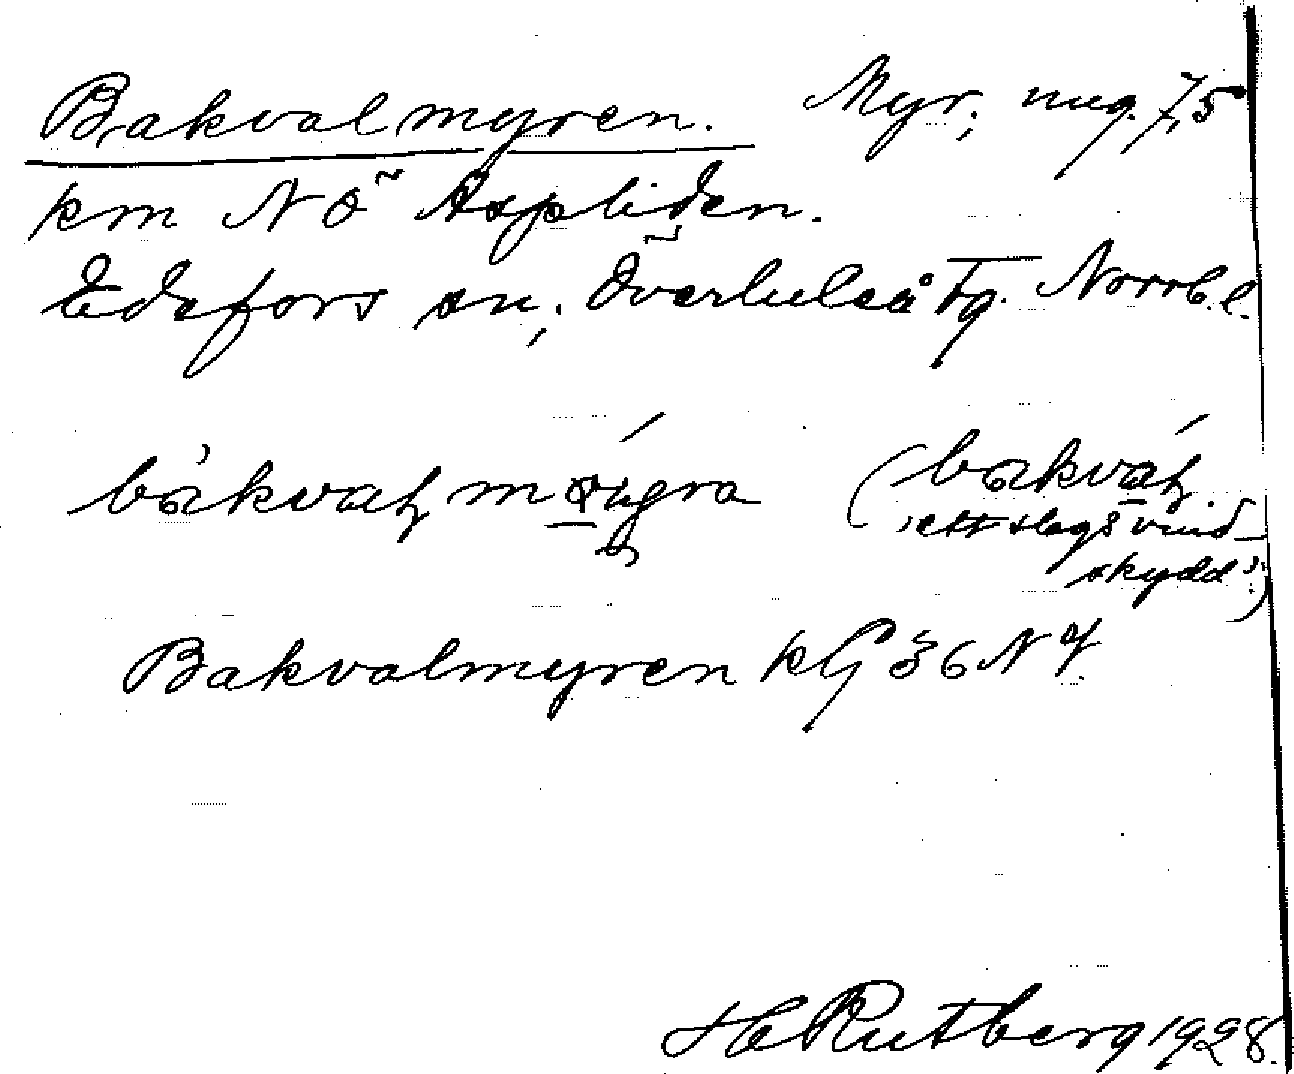 Bakvalmyren. Myr, ung. 7,5
km NÖ Aspliden.
Edefors sn, Överluleå tg. Norrb. l.
(bakval
'ett slags vind-
skydd')
Bakvalmyren kG 36 NV.
H Rutberg 1928.